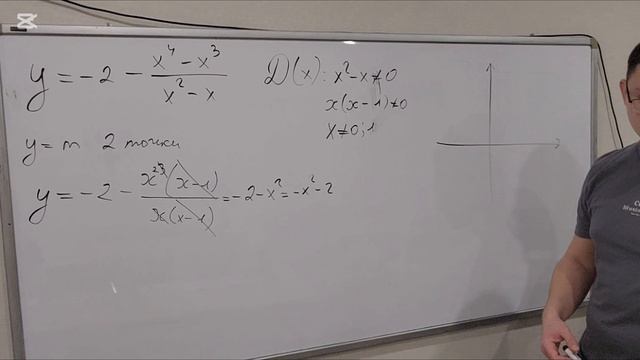 y = -2 - \frac{x^4 - x^3}{x^2 - x}
D(x): x^2 - x ≠ 0
x(x - 1) ≠ 0
x ≠ 0; 1
y = m 2 точки
y = -2 - \frac{x^{2 3}(x - 1)}{x(x - 1)} = -2 - x^2 = -x^2 - 2